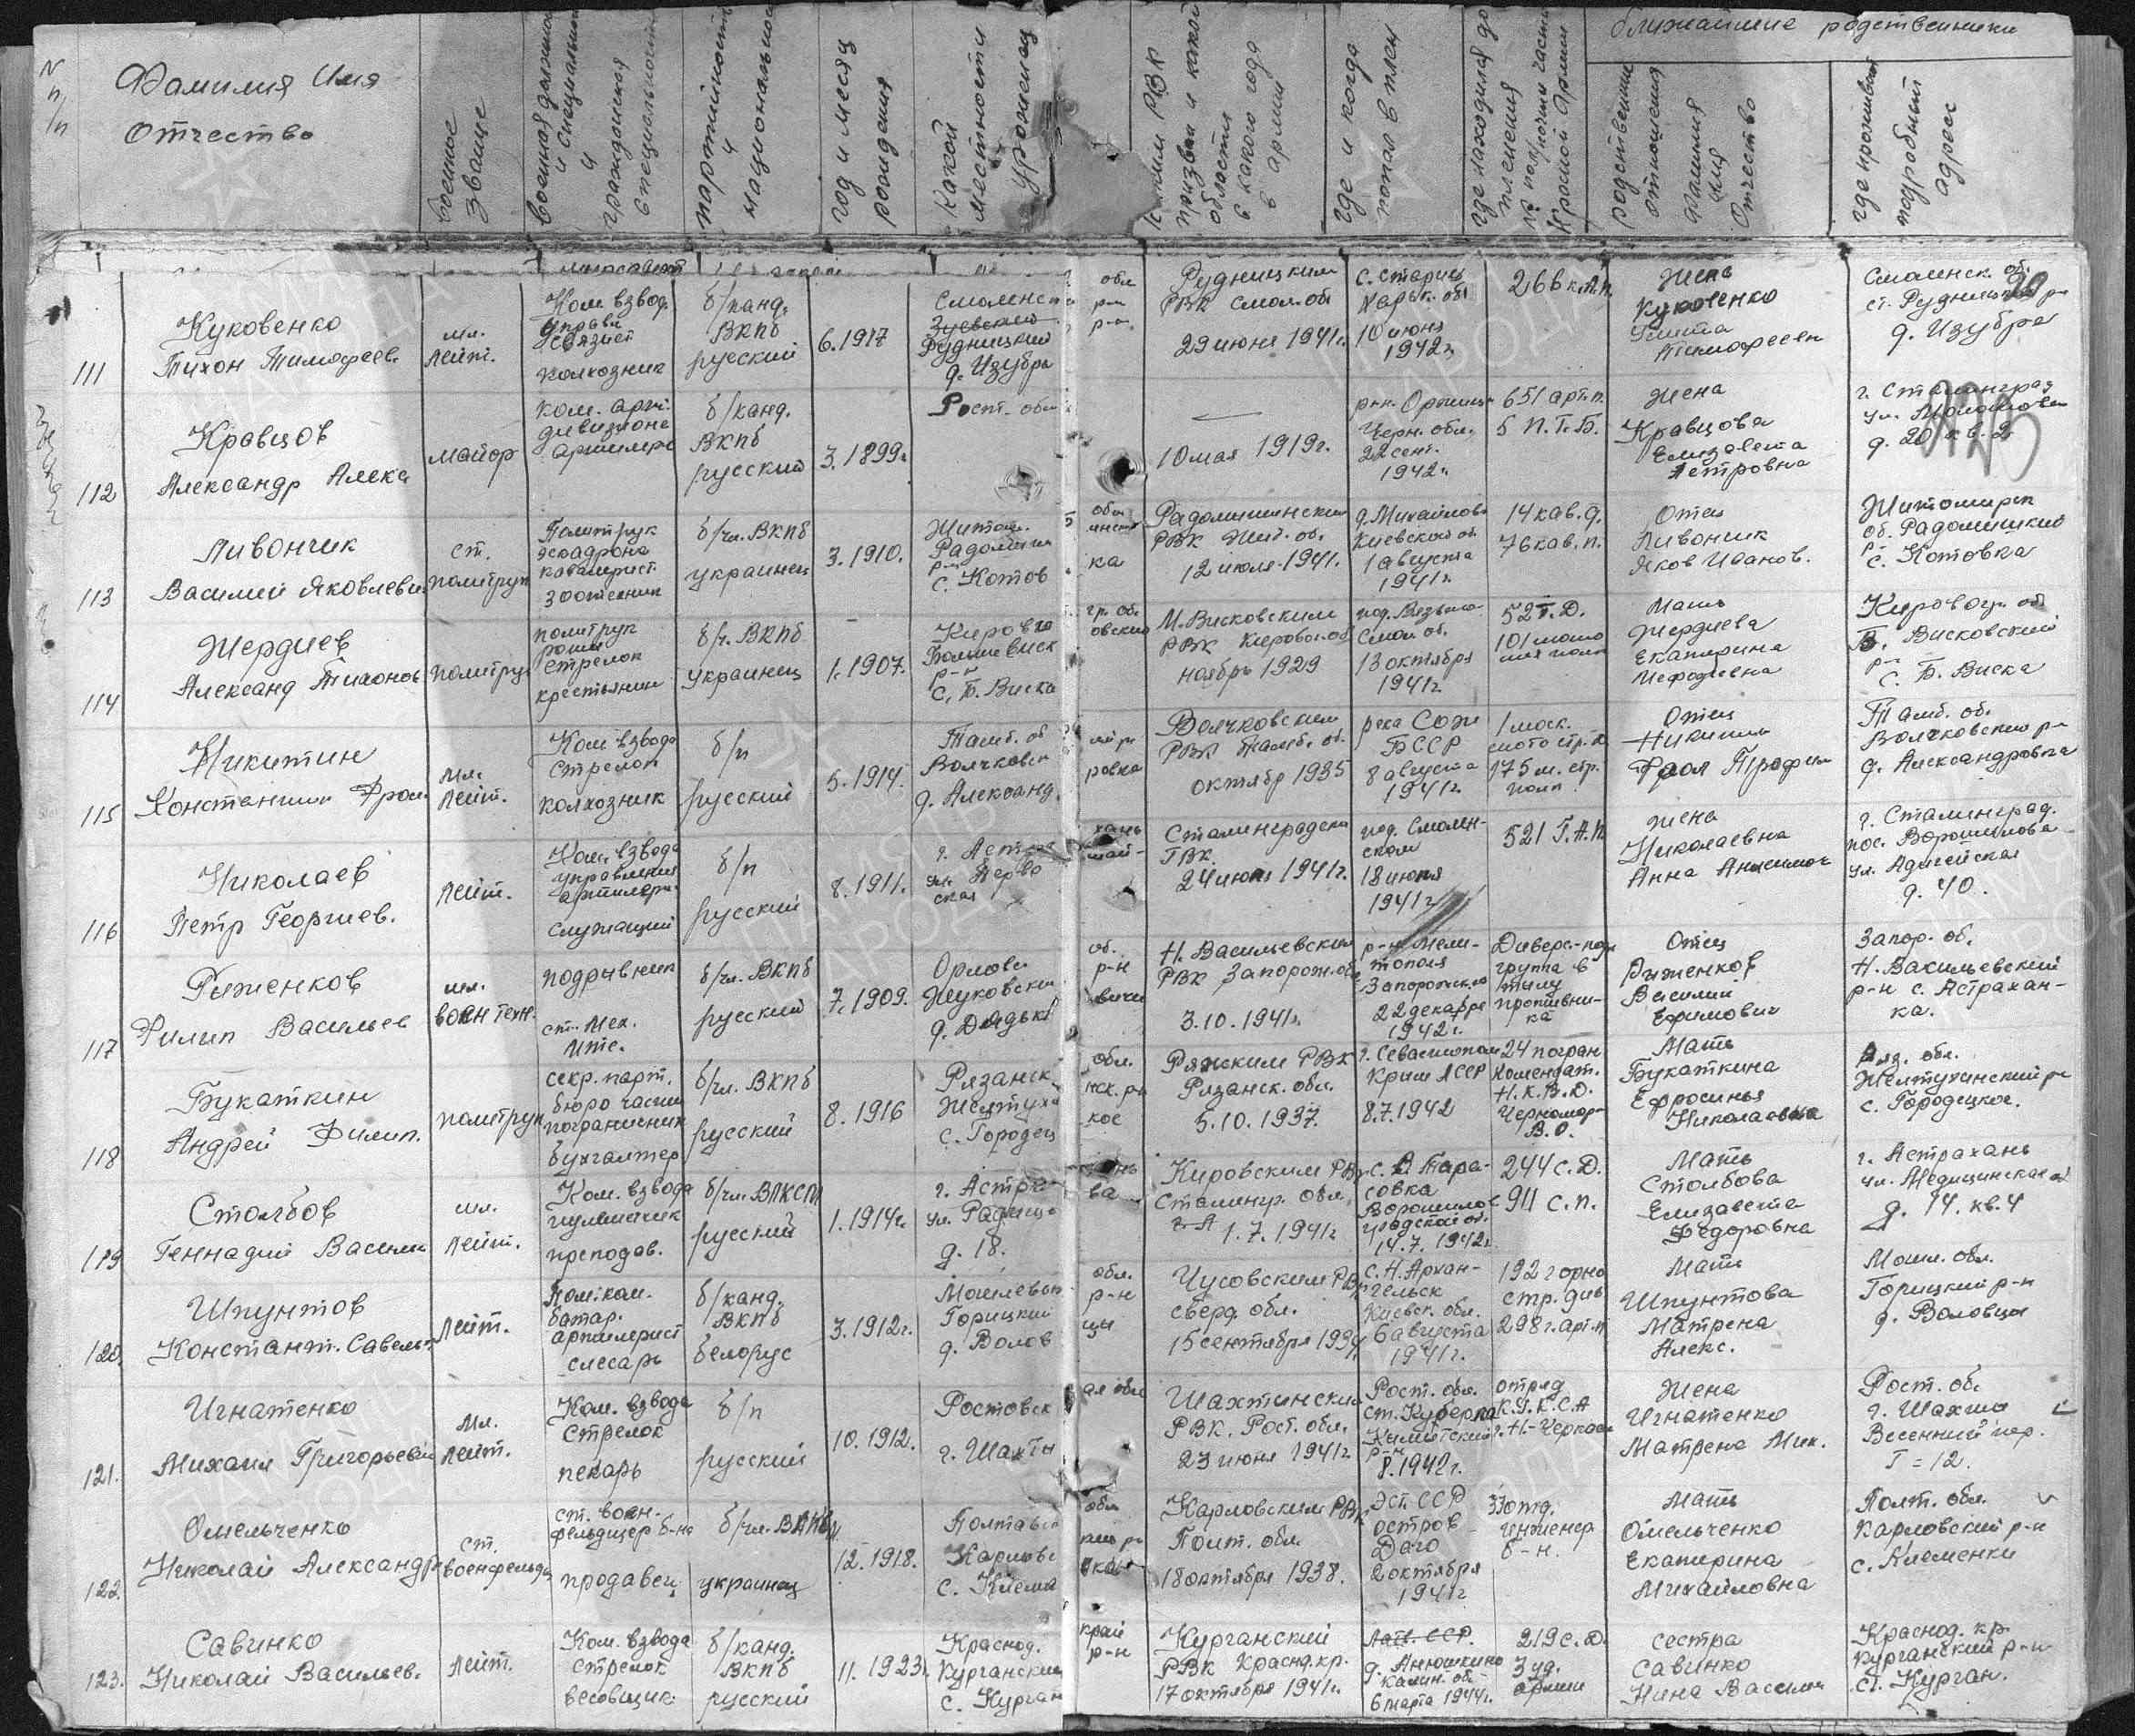 № п/п
Фамилия Имя
Отчество
военное
звание
военная должность
и специальность
и
гражданская
специальность
партийность
и
национальность
год и месяц
рождения
какой
местности
уроженец
каким РВК
призван и какой
области
с какого года
в армии
где и когда
попал в плен
где находился до
пленения
№ полка/прочих части
Красной Армии
ближайшие родственники
родственные
отношения
фамилия
имя
Отчество
где проживает
подробный
адрес
111
Куковенко
Тихон Тимофеев.
мл.
лейт.
Ком. взвод.
управл
связист
колхозник
б/канд.
ВКПб
русский
6.1917
Смоленск
Рудницкий
д. Изубри
обл
р-н
Рудницким
РВК Смол. обл
29 июня 1941г.
с. Стариц
Харьк. обл
10 июня
1942г.
266 к.А.п.
Жена
Куковенко
Тимофеевн
Смоленск. об.
ст. Рудницк р-н
д. Изубри
112
Кравцов
Александр Алекс
майор
ком. арт.
дивизиона
артилер
б/канд.
ВКПб
русский
3.1899г
Рост. обл
10 мая 1919г.
р-н. Оржица
Черн. обл.
22 сент.
1942г.
651 арт.п.
5 П.Т.Б.
Жена
Кравцова
Елизавета
Петровна
г. Сталинград
ул. Молотова
д. 20 кв. 2
113
Ливончик
Василий Яковлеви
ст.
политрук
Политрук
эскадрона
кавалерист
зоотехник
б/чл. ВКПб
украинец
3.1910.
Житом.
Радомыш
р-н
с. Котов
обл
ка
Радомышльским
РВК Жит. об.
12 июля 1941г.
д. Михайлов
Киевской об.
1 августа
1941г
14 кав.д.
76 кав.п.
Отец
Ливончик
Яков Иванов.
Житомирск
об. Радомышкий
р-
с. Котовка
114
Жердиев
Александ Тихонов
политрук
политрук
роты
стрелок
крестьянин
б/ч. ВКПб
украинец
1.1907.
Кирово
Больше Виск
р-н
с. Б. Виска
гр. об.
овский
М. Висковским
РВК Кировог. об
ноябрь 1929
под. Вязьмо
Смол. об.
13 октября
1941г
52 Т.Д.
101 мото
Мать
Жердиева
Екатерина
Мефодиевна
Кировогр. об
Б. Висковский
р-
с. Б. Виска
115
Никитин
Константин Фрол
мл.
лейт.
Ком. взвода
стрелок
колхозник
б/п
русский
5.1914.
Тамб. об
Волчковск
д. Александ.
ровка
Волчковским
РВК Тамб. об.
октябр 1935
река Сож
БССР
8 августа
1941г
1 моск.
мото стр. д
175 м. стр.
полк
Отец
Никитин
Фрол Трофим
Тамб. об.
Волчковский р-
д. Александровка
116
Николаев
Петр Георгиев.
лейт.
Ком. взвода
управления
артилери
служащий
б/п
русский
8.1911.
г. Астра
ул. Перво
ская
хань
май-
Сталинградским
ГВК.
24 июня 1941г.
под. Смолен-
ском
18 июля
1941г
521 Г.А.П
жена
Николаевна
Анна Анисимов
г. Сталинград.
пос. Ворошилова
ул. Адигейская
д. 40.
117
Рыженков
Филип Васильев
мл.
воентехн.
подрывник
ст. Мех.
МТС.
б/чл. ВКПб
русский
7.1909.
Орловс
Жуковски
д. Дядьк
об.
р-н
вичи
Н. Васильевским
РВК Запорож. об.
3.10.1941г.
р-н Мели-
тополя
Запорожской
22 декабря
1942г.
Диверс-под.
группа в
тылу
противни-
ка
Отец
Рыженков
Василий
Ефимович
Запор. об.
Н. Васильевский
р-н с. Астрахан-
ка.
118
Букаткин
Андрей Филип.
политрук
секр. парт.
бюро части
пограничник
бухгалтер
б/чл. ВКПб
русский
8.1916
Рязанск
Желтух
с. Городец
обл.
нск. р-
кое
Ряжским РВК
Рязанск. обл.
5.10.1937.
г. Севастополь
Крым АССР
8.7.1942
24 погран
комендат.
Н.К.В.Д.
Черномор-
В.О.
Мать
Букаткина
Ефросинья
Николаевна
Ряз. обл.
Желтухинский р-
с. Городецкое.
119
Столбов
Геннадий Василь
мл.
лейт.
Ком. взвода
пулеметчик
преподав.
б/чл. ВЛКСМ
русский
1.1914г.
г. Астра
ул. Радище
д. 18.
хань
ва
Кировским РВК
Сталингр. обл.
1.7.1941г
с. Тара-
совка
Ворошилов
градской об.
14.7.1942г.
244 с.Д.
911 с.п.
Мать
Столбова
Елизавета
Федоровна
г. Астрахань
ул. Медицинская
д. 14. кв. 4
120
Шпунтов
Констант. Савель
лейт.
Пом. ком.
батар.
артилерист
слесарь
б/канд.
ВКПб
белорус
3.1912г.
Могилевск
Горицкий
д. Волов
обл.
р-н
цы
Чусовским РВК
сверд. обл.
15 сентября 193
с. Н. Архан-
гельск
Киевск. обл.
6 августа
1941г.
192 горно
стр. див
298 г. арт.п
Мать
Шпунтова
Матрена
Алекс.
Могил. обл.
Горицкий р-н
д. Воловцы
121.
Игнатенко
Михаил Григорьевич
мл.
лейт.
Ком. взвода
стрелок
пекарь
б/п
русский
10.1912.
Ростовск
г. Шахты
ая обл
Шахтинским
РВК. Рост. обл.
23 июня 1941г
Рост. обл.
ст. Куберка
р-н
8.1942г.
отряд
К.У.К.С.А
г. Н-Черкасск
Жена
Игнатенко
Матрена Мих.
Рост. об.
г. Шахты
Весенний пер.
Г=12.
122.
Омельченко
Николай Александр
ст.
военфельд
ст. воен-
фельдшер б-на
продавец
б/чл. ВЛКСМ
украинец
12.1918.
Полтавск
Карловс
с. Клеме
обл
Карловским РВК
Полт. обл.
18 октября 1938.
Эст. ССР
остров
Даго
2 октября
1941г
33 отд.
инженер.
б-н.
Мать
Омельченко
Екатерина
Михайловна
Полт. обл.
Карловский р-н
с. Клеменки
123.
Савинко
Николай Васильев.
лейт.
Ком. взвода
стрелок
весовщик
б/канд.
ВКПб
русский
11.1923г.
Краснод.
Курганский
с. Курган
край
р-н
Курганский
РВК Краснд. кр.
17 октября 1941г.
Латв. ССР.
д. Анюшкино
Калин. об
6 марта 1944г.
219 с.Д.
3 уд.
армии
сестра
Савинко
Нина Василь
Краснод. кр.
Курганский р-н
ст. Курган.